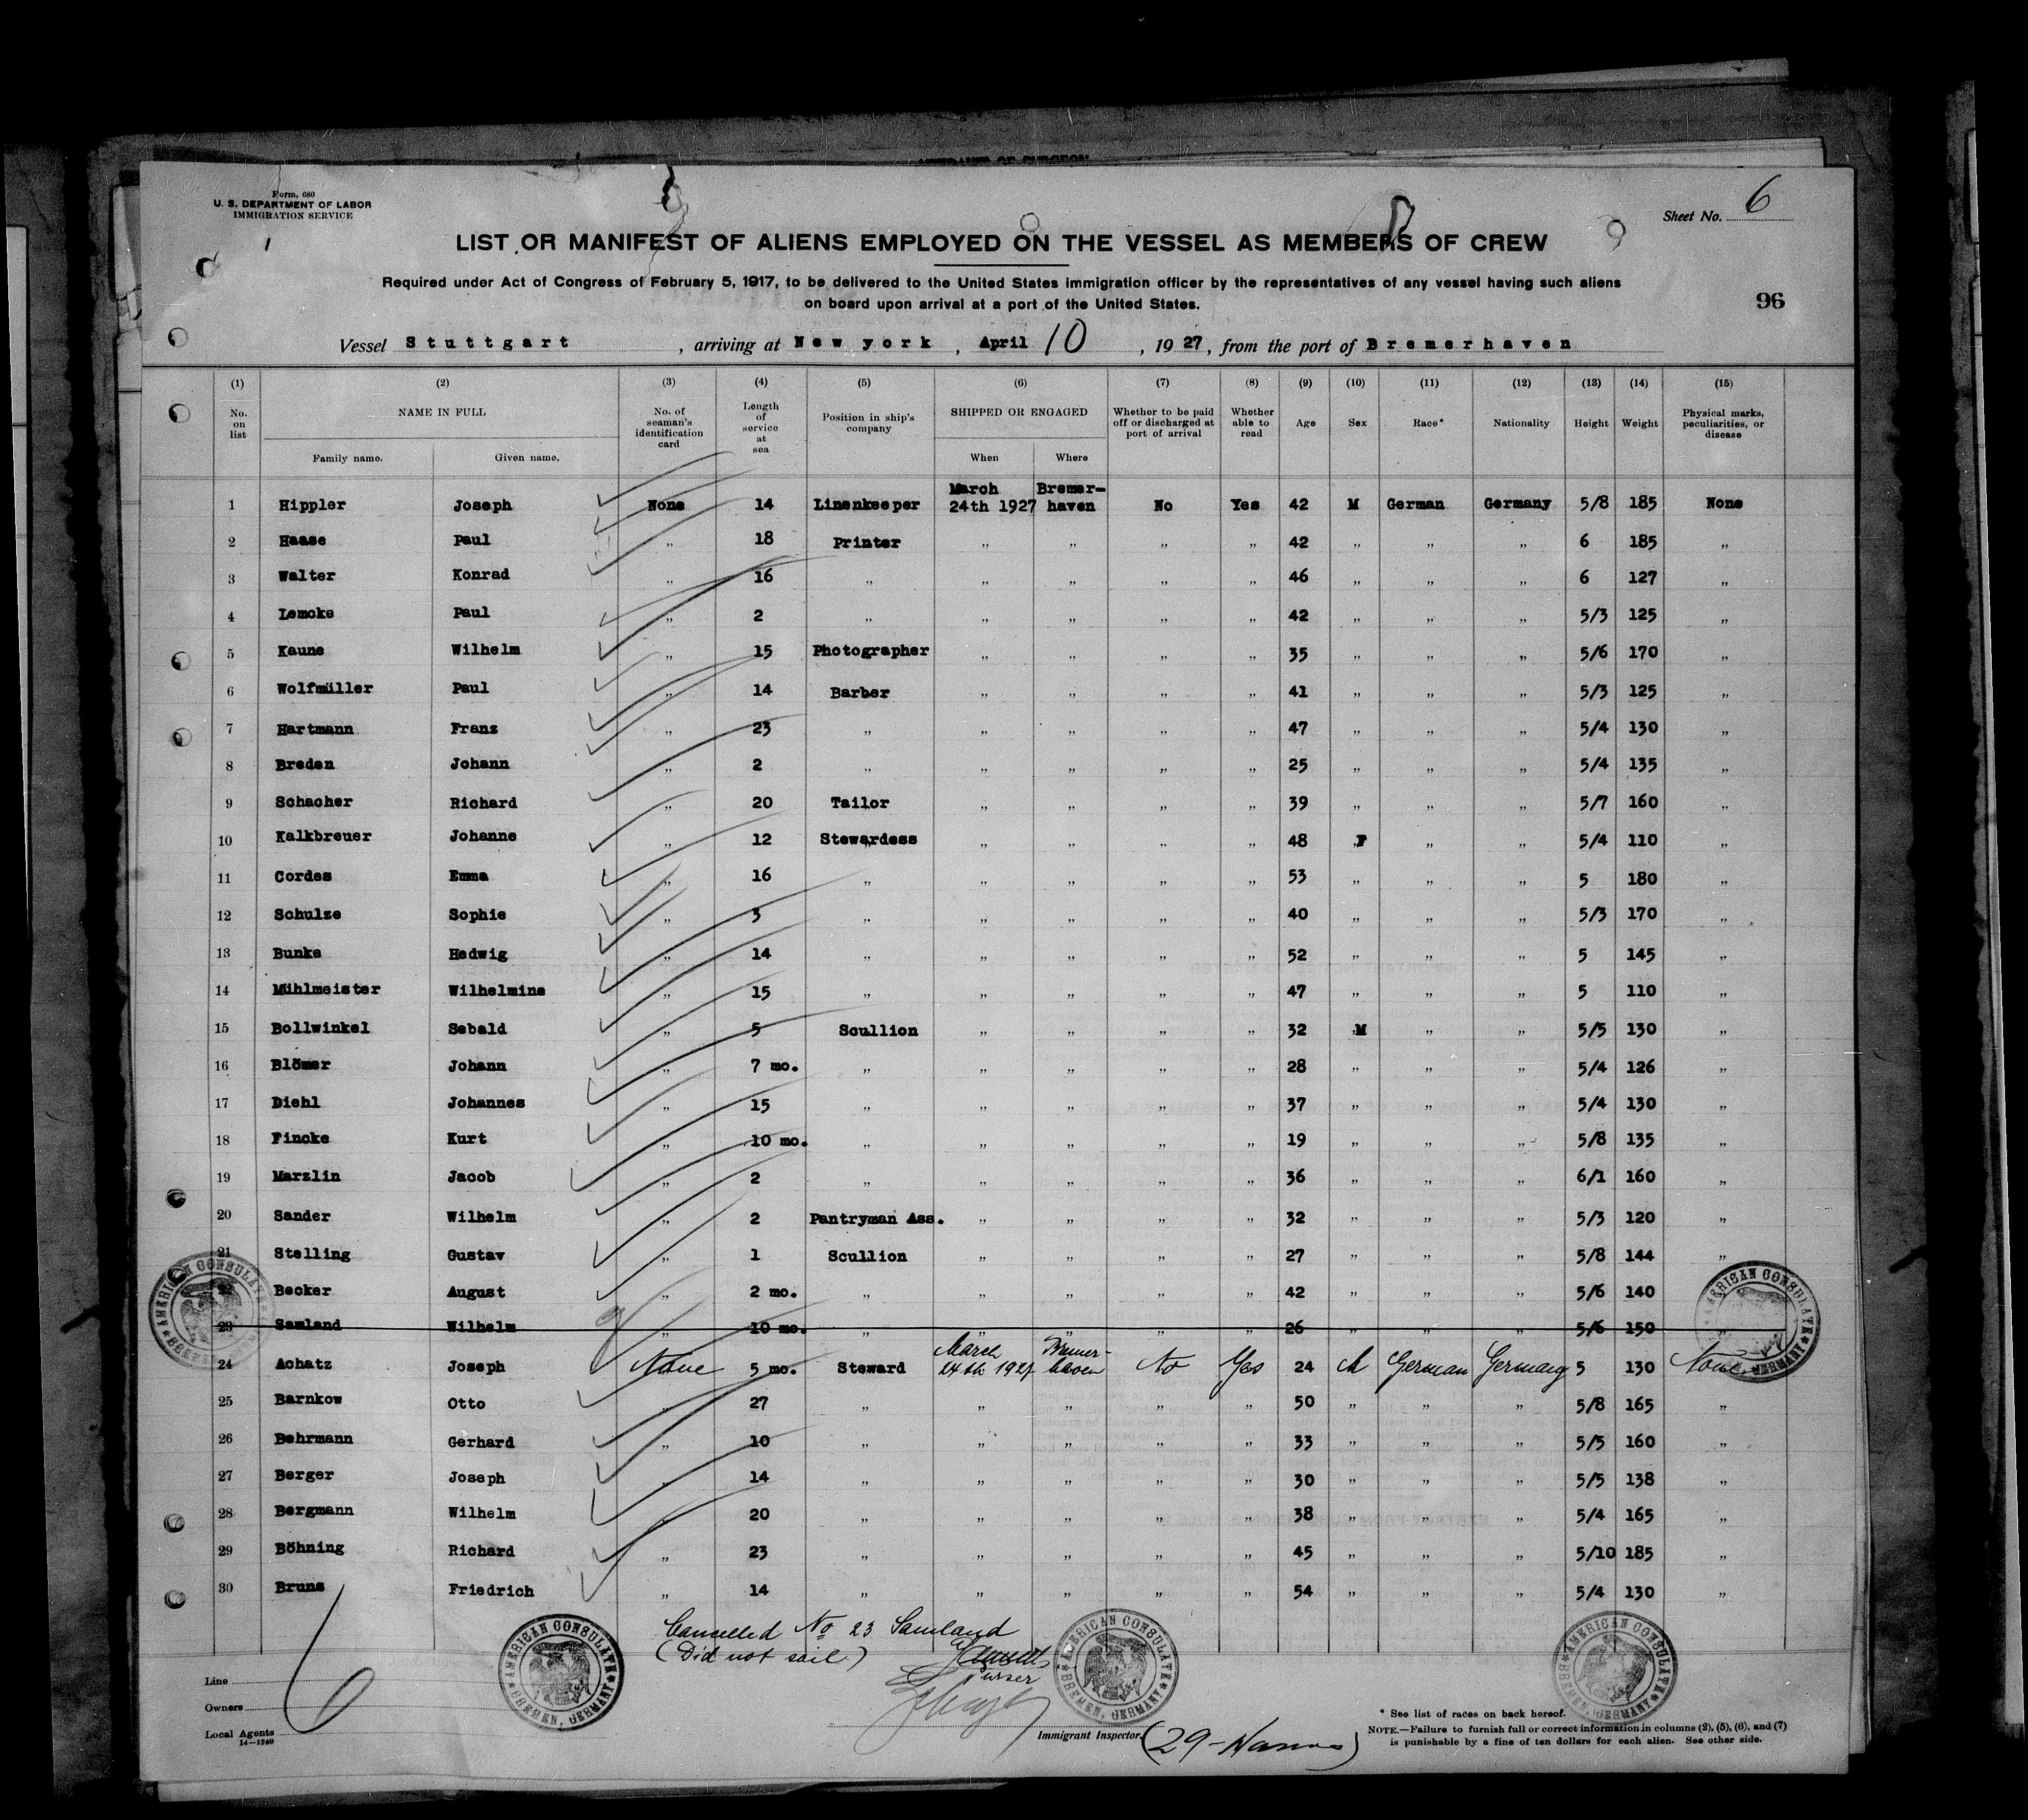 Form. 680
U. S. DEPARTMENT OF LABOR
IMMIGRATION SERVICE
Sheet No. 6
LIST OR MANIFEST OF ALIENS EMPLOYED ON THE VESSEL AS MEMBERS OF CREW
Required under Act of Congress of February 5, 1917, to be delivered to the United States immigration officer by the representatives of any vessel having such aliens
on board upon arrival at a port of the United States.
96
Vessel Stuttgart, arriving at New york, April 10, 1927, from the port of Bremerhaven
(1) (2) (3) (4) (5) (6) (7) (8) (9) (10) (11) (12) (13) (14) (15)
No. on list NAME IN FULL Family name. Given name. No. of seaman's identification card Length of service at sea Position in ship's company SHIPPED OR ENGAGED When Where Whether to be paid off or discharged at port of arrival Whether able to read Age Sex Race* Nationality Height Weight Physical marks, peculiarities, or disease
1 Hippler Joseph None 14 Linenkeeper March 24th 1927 Bremer-haven No Yes 42 M German Germany 5/8 185 None
2 Haase Paul „ 18 Printer „ „ „ „ 42 „ „ „ 6 185 „
3 Walter Konrad „ 16 „ „ „ „ „ 46 „ „ „ 6 127 „
4 Lemcke Paul „ 2 „ „ „ „ „ 42 „ „ „ 5/3 125 „
5 Kaune Wilhelm „ 15 Photographer „ „ „ „ 35 „ „ „ 5/6 170 „
6 Wolfmüller Paul „ 14 Barber „ „ „ „ 41 „ „ „ 5/3 125 „
7 Hartmann Franz „ 23 „ „ „ „ „ 47 „ „ „ 5/4 130 „
8 Breden Johann „ 2 „ „ „ „ „ 25 „ „ „ 5/4 135 „
9 Schacher Richard „ 20 Tailor „ „ „ „ 39 „ „ „ 5/7 160 „
10 Kalkbreuer Johanne „ 12 Stewardess „ „ „ „ 48 F „ „ 5/4 110 „
11 Cordes Emma „ 16 „ „ „ „ „ 53 „ „ „ 5 180 „
12 Schulze Sophie „ 3 „ „ „ „ „ 40 „ „ „ 5/3 170 „
13 Bunke Hedwig „ 14 „ „ „ „ „ 52 „ „ „ 5 145 „
14 Mühlmeister Wilhelmine „ 15 „ „ „ „ „ 47 „ „ „ 5 110 „
15 Bollwinkel Sebald „ 5 Scullion „ „ „ „ 32 M „ „ 5/5 130 „
16 Blömer Johann „ 7 mo. „ „ „ „ „ 28 „ „ „ 5/4 126 „
17 Diehl Johannes „ 15 „ „ „ „ „ 37 „ „ „ 5/4 130 „
18 Fincke Kurt „ 10 mo. „ „ „ „ „ 19 „ „ „ 5/8 135 „
19 Marzlin Jacob „ 2 „ „ „ „ „ 36 „ „ „ 6/1 160 „
20 Sander Wilhelm „ 2 Pantryman Ass. „ „ „ „ 32 „ „ „ 5/3 120 „
21 Stelling Gustav „ 1 Scullion „ „ „ „ 27 „ „ „ 5/8 144 „
22 Becker August „ 2 mo. „ „ „ „ „ 42 „ „ „ 5/6 140 „
23 Samland Wilhelm „ 10 mo. „ „ „ „ „ 26 „ „ „ 5/6 150 „
24 Achatz Joseph None 5 mo. Steward March 24th 1927 Bremer-haven No Yes 24 M German Germany 5 130 None
25 Barnkow Otto „ 27 „ „ „ „ „ 50 „ „ „ 5/8 165 „
26 Behrmann Gerhard „ 10 „ „ „ „ „ 33 „ „ „ 5/5 160 „
27 Berger Joseph „ 14 „ „ „ „ „ 30 „ „ „ 5/5 138 „
28 Bergmann Wilhelm „ 20 „ „ „ „ „ 38 „ „ „ 5/4 165 „
29 Böhning Richard „ 23 „ „ „ „ „ 45 „ „ „ 5/10 185 „
30 Bruns Friedrich „ 14 „ „ „ „ „ 54 „ „ „ 5/4 130 „
Cancelled No 23 Samland
(Did not sail)
Purser
AMERICAN CONSULATE BREMEN, GERMANY
AMERICAN CONSULATE BREMEN, GERMANY
AMERICAN CONSULATE BREMEN, GERMANY
AMERICAN CONSULATE
AMERICAN CONSULATE
Line
Owners
Local Agents
14—1240
6
Immigrant Inspector.
(29-Names)
* See list of races on back hereof.
NOTE.—Failure to furnish full or correct information in columns (2), (5), (6), and (7)
is punishable by a fine of ten dollars for each alien. See other side.